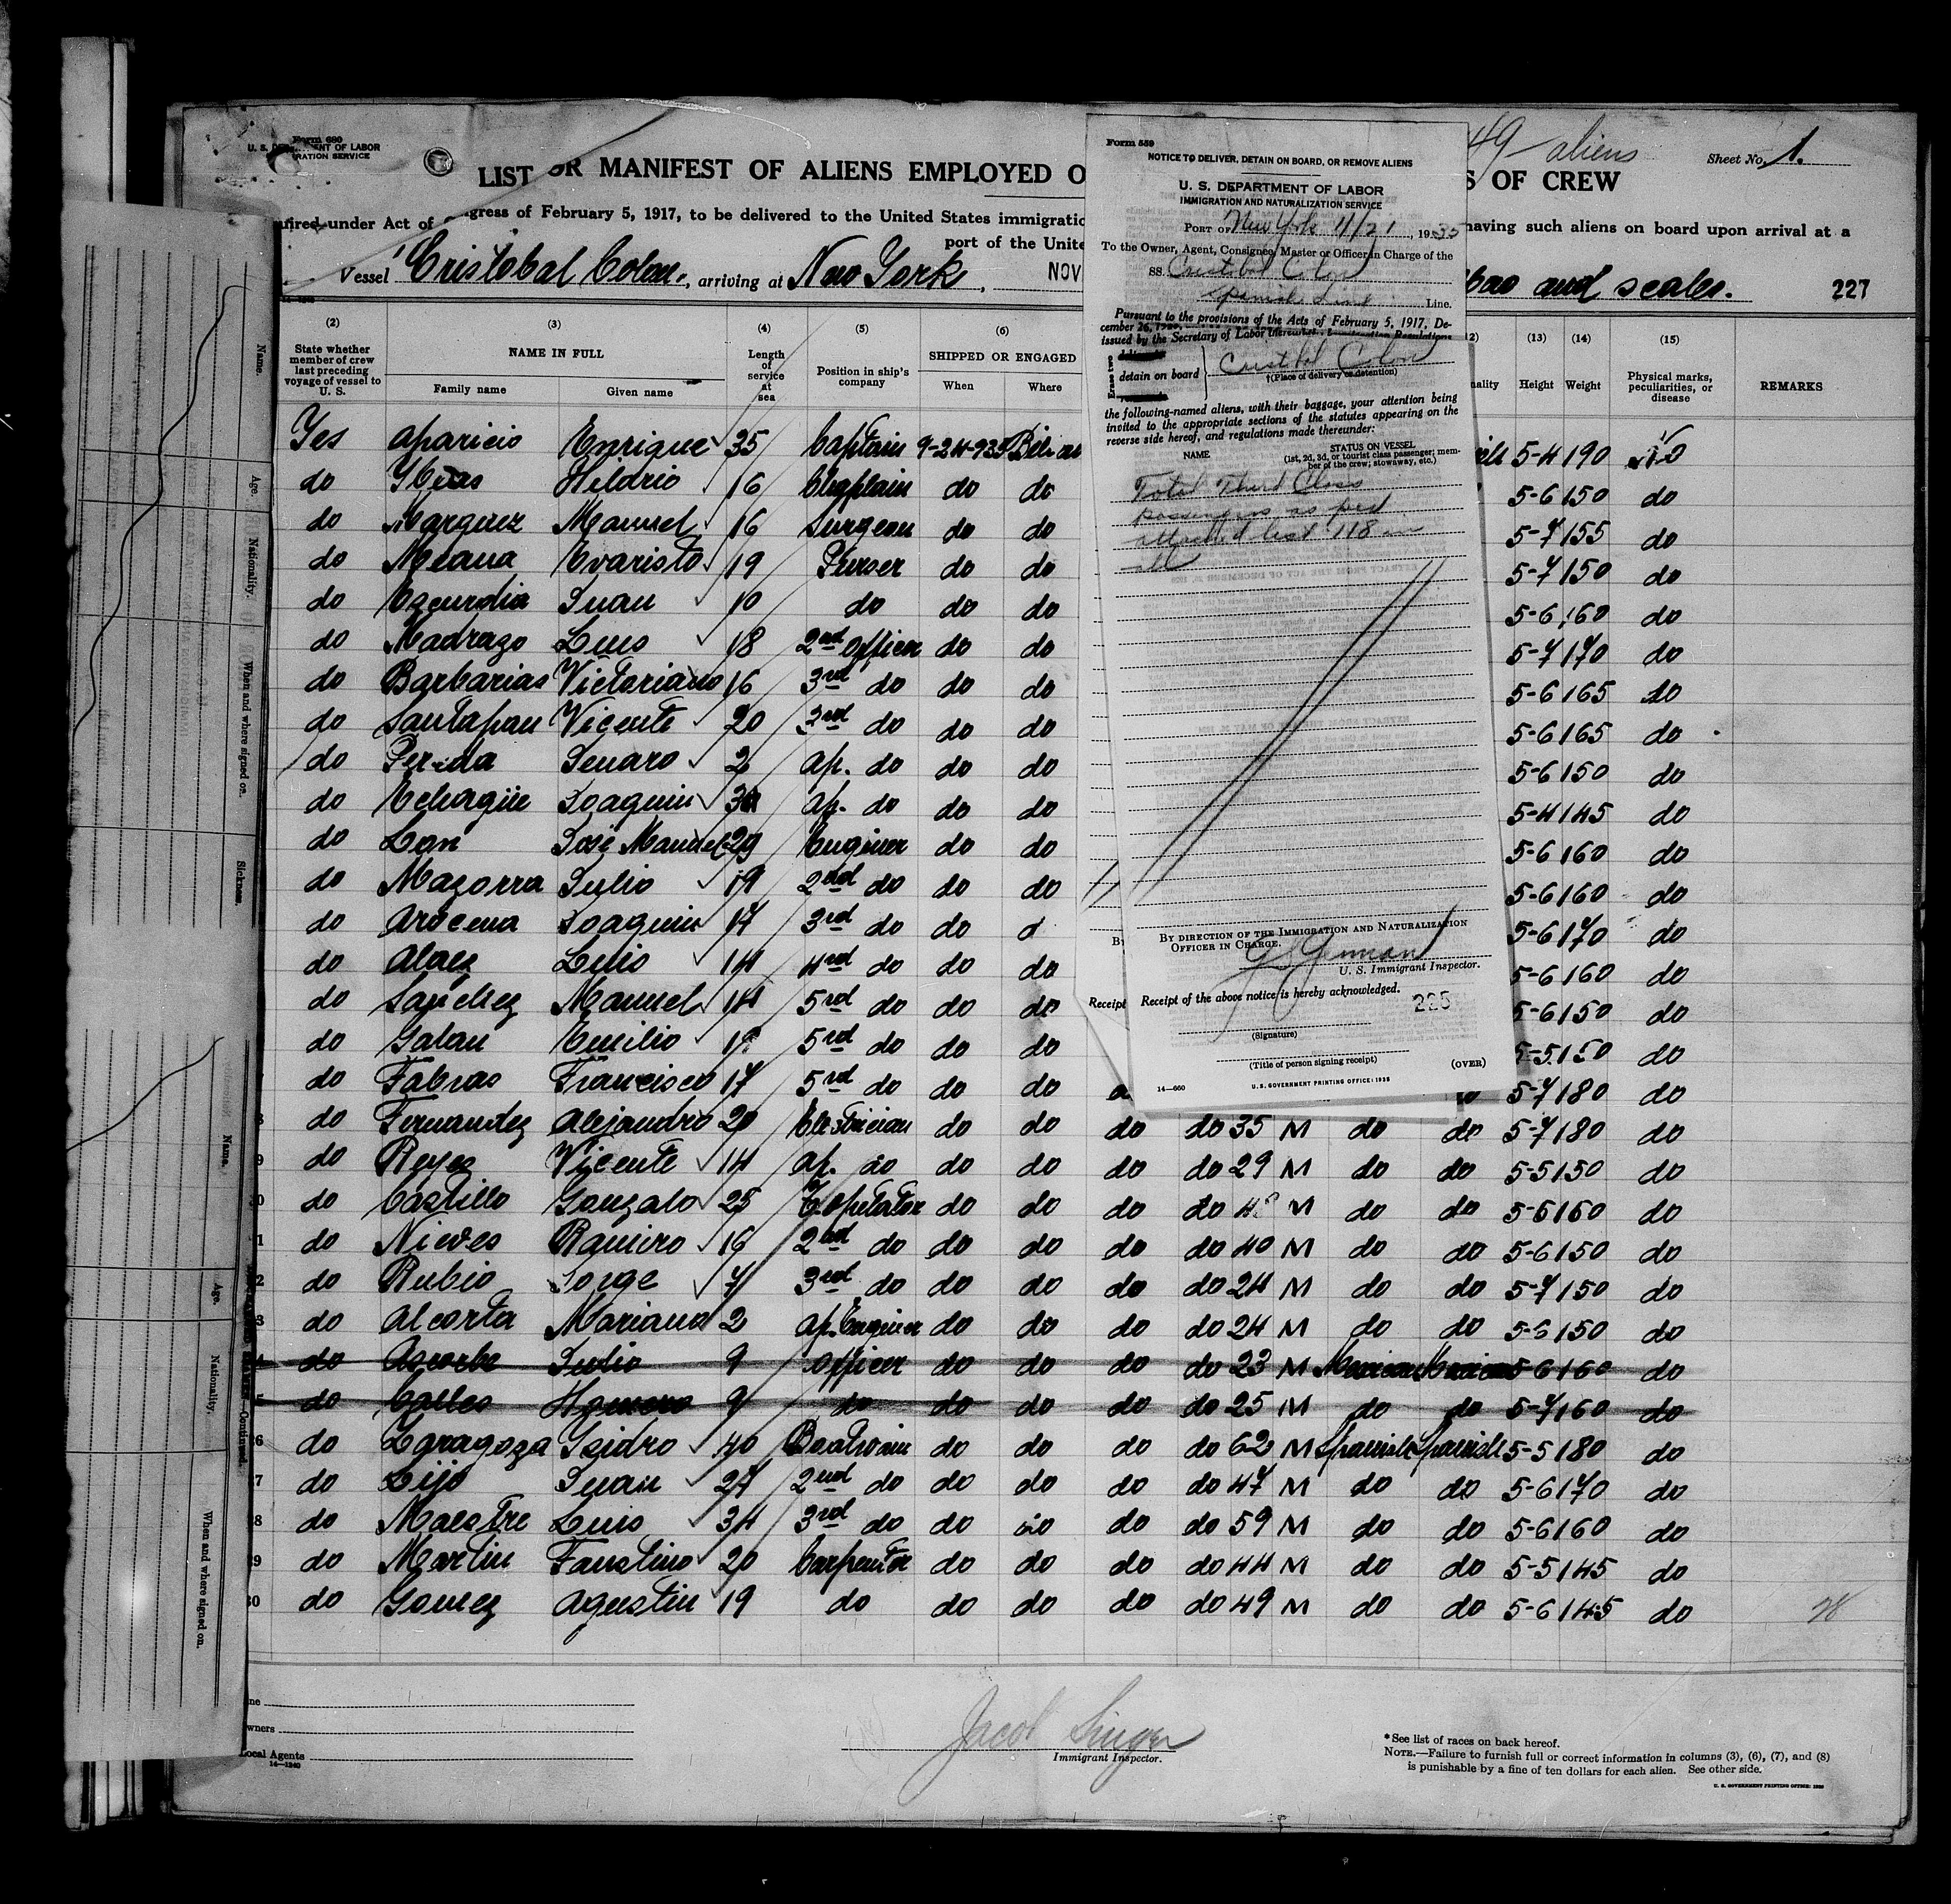 Form 680
U. S. DEPARTMENT OF LABOR
IMMIGRATION SERVICE
LIST OR MANIFEST OF ALIENS EMPLOYED O
S OF CREW
49 aliens
Sheet No. 1.
uired under Act of Congress of February 5, 1917, to be delivered to the United States immigratio
having such aliens on board upon arrival at a
port of the Unite
Vessel Cristobal Colon, arriving at New York, NOV
bao and scales.
227
(2) (3) (4) (5) (6) (13) (14) (15)
State whether member of crew last preceding voyage of vessel to U. S.
NAME IN FULL
Family name Given name
Length of service at sea
Position in ship's company
SHIPPED OR ENGAGED
When Where
Height Weight
Physical marks, peculiarities, or disease
REMARKS
Yes Aparicio Enrique 35 Captain 9-24-935 5-4 190
do Hilario 16 Chaplain do do 5-6 150 do
do Marquez Manuel 16 Surgeon do do 5-7 155 do
do Meana Evaristo 19 Purser do do 5-7 150 do
do Egcurdia Juan 10 do do do 5-6 160 do
do Madrazo Luis 18 2nd Officer do do 5-7 170 do
do Barbarias Victoriano 16 3rd do do do 5-6 165 do
do Santapau Vicente 20 3rd do do do 5-6 165 do
do Pereda Genaro 2 Ap. do do do 5-6 150 do
do Echagüe Joaquin Ap. do do do 5-4 145 do
do Lon José Manuel 29 Enginer do do 5-6 160 do
do Mazorra Julio 19 2nd do do do 5-6 160 do
do Arocena Joaquin 17 3rd do do d 5-6 170 do
do Alaez Luis 14 4rd do do do 5-6 160 do
do Sanchez Manuel 14 5rd do do do 5-6 150 do
do Galan Emilio 5rd do do do 5-5 150 do
do Fabras Francisco 17 5rd do do do 5-7 180 do
do Fernandez Alejandro 20 Electrician do do do do 35 M do do 5-7 180 do
do Reyes Vicente 14 Ap. do do do do do 29 M do do 5-5 150 do
do Castillo Gonzalo 25 do do do do M do do 5-6 160 do
do Nieves Ramiro 16 2nd do do do do do 40 M do do 5-6 150 do
do Rubio Jorge 7 3rd do do do do do 24 M do do 5-7 150 do
do Alcorta Mariano 2 Ap. Enginer do do do do 24 M do do 5-6 150 do
do Julio 9 Officer do do do do 23 M Mexican Mexican 5-6 160 do
do Calles Homero 9 do do do do do 25 M do do 5-7 160 do
do Zaragoza Isidro 40 Boatswain do do do do 62 M Spanish Spanish 5-5 180 do
do Lijo Juan 27 2nd do do do do do 47 M do do 5-6 170 do
do Maestre Luis 34 3rd do do do do do 59 M do do 5-6 160 do
do Martin Faustino 20 Carpenter do do do do 44 M do do 5-5 145 do
do Gomez Agustin 19 do do do do do 49 M do do 5-6 145 do
28
Local Agents
14—1240
Jacob Singer
Immigrant Inspector.
* See list of races on back hereof.
NOTE.—Failure to furnish full or correct information in columns (3), (6), (7), and (8)
is punishable by a fine of ten dollars for each alien. See other side.
Form 559
NOTICE TO DELIVER, DETAIN ON BOARD, OR REMOVE ALIENS
U. S. DEPARTMENT OF LABOR
IMMIGRATION AND NATURALIZATION SERVICE
PORT OF New York 11/21, 1935
To the Owner, Agent, Consignee, Master or Officer in Charge of the
SS. Cristobal Colon
Spanish Line Line.
Pursuant to the provisions of the Acts of February 5, 1917, De-
cember 26,
issued by the Secretary of Labor
Erase two
detain on board
Cristobal Colon
†(Place of delivery or detention)
the following-named aliens, with their baggage, your attention being
invited to the appropriate sections of the statutes appearing on the
reverse side hereof, and regulations made thereunder:
NAME
STATUS ON VESSEL
(1st, 2d, 3d, or tourist class passenger; mem-
ber of the crew; stowaway, etc.)
Total Third Class
passengers as per
attached list 118 in
all
BY DIRECTION OF THE IMMIGRATION AND NATURALIZATION
OFFICER IN CHARGE.
U. S. Immigrant Inspector.
Receipt of the above notice is hereby acknowledged.
225
(Signature)
(Title of person signing receipt)
(OVER)
14—660
U. S. GOVERNMENT PRINTING OFFICE: 1935
Receipt
Name.
Age.
Nationality.
When and where signed on.
Sickness.
Name.
Age.
Nationality.
When and where signed on.